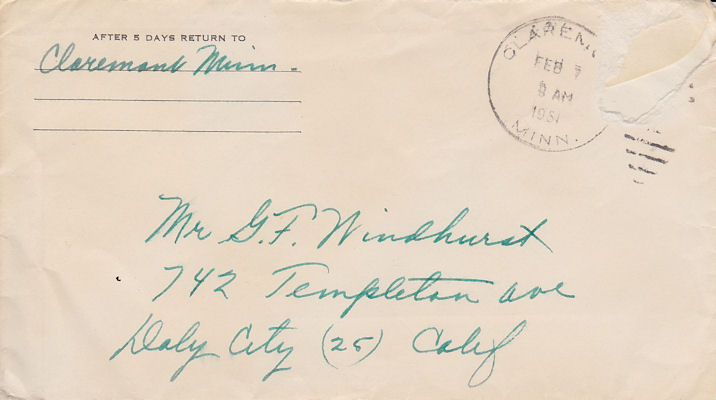 AFTER 5 DAYS RETURN TO
Claremont Minn.
CLAREM
FEB 7
9 AM
1951
MINN.
Mr G.F. Windhurst
742 Templeton ave
Daly City (25) Calif